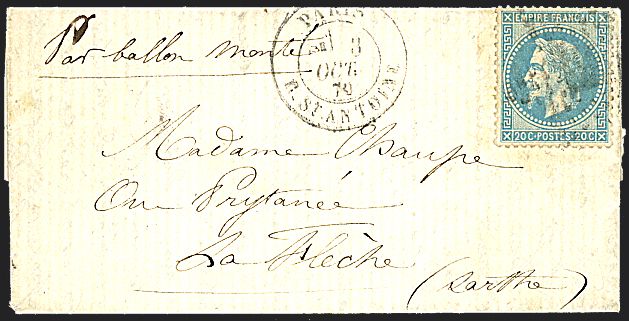 Par ballon monté
PARIS
3
OCT.
70
R. ST-ANTOINE
EMPIRE FRANÇAIS
20C POSTES 20C
Madame Chaupe
Au Prytanée
La Flèche
(Sarthe)